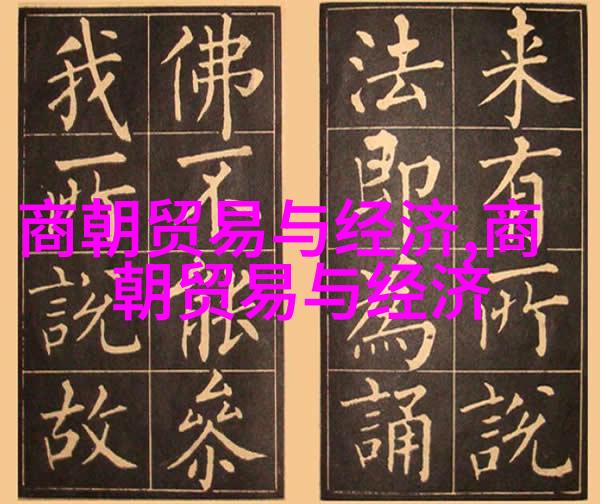 商朝贸易与经济,商
朝贸易与经济
来有所說
法即為誦
佛不能參
我所說故